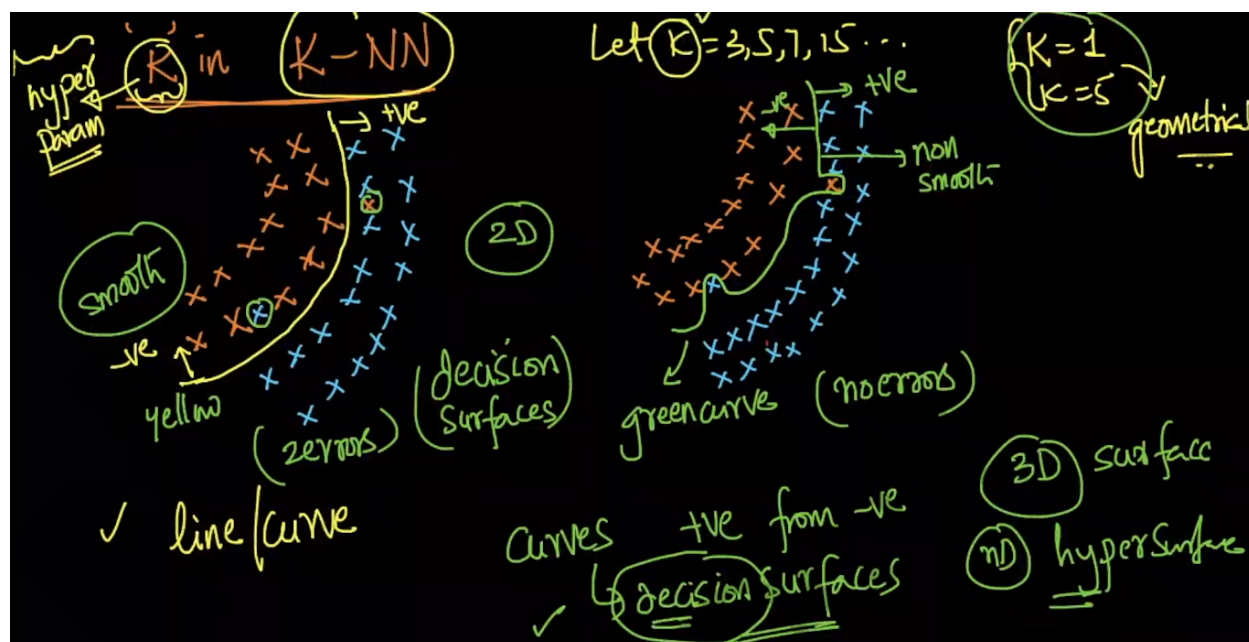 'K' in K-NN
hyper
param
Let K = 3, 5, 7, 15 ...
K = 1
K = 5
geometrical
+ve
-ve
+ve
non
smooth
2D
smooth
-ve
yellow
(2errors)
(decision
surfaces)
green curve
(no errors)
3D surface
✓ line/curve
curves +ve from -ve
✓ ↳ decision surfaces
nD hypersurface